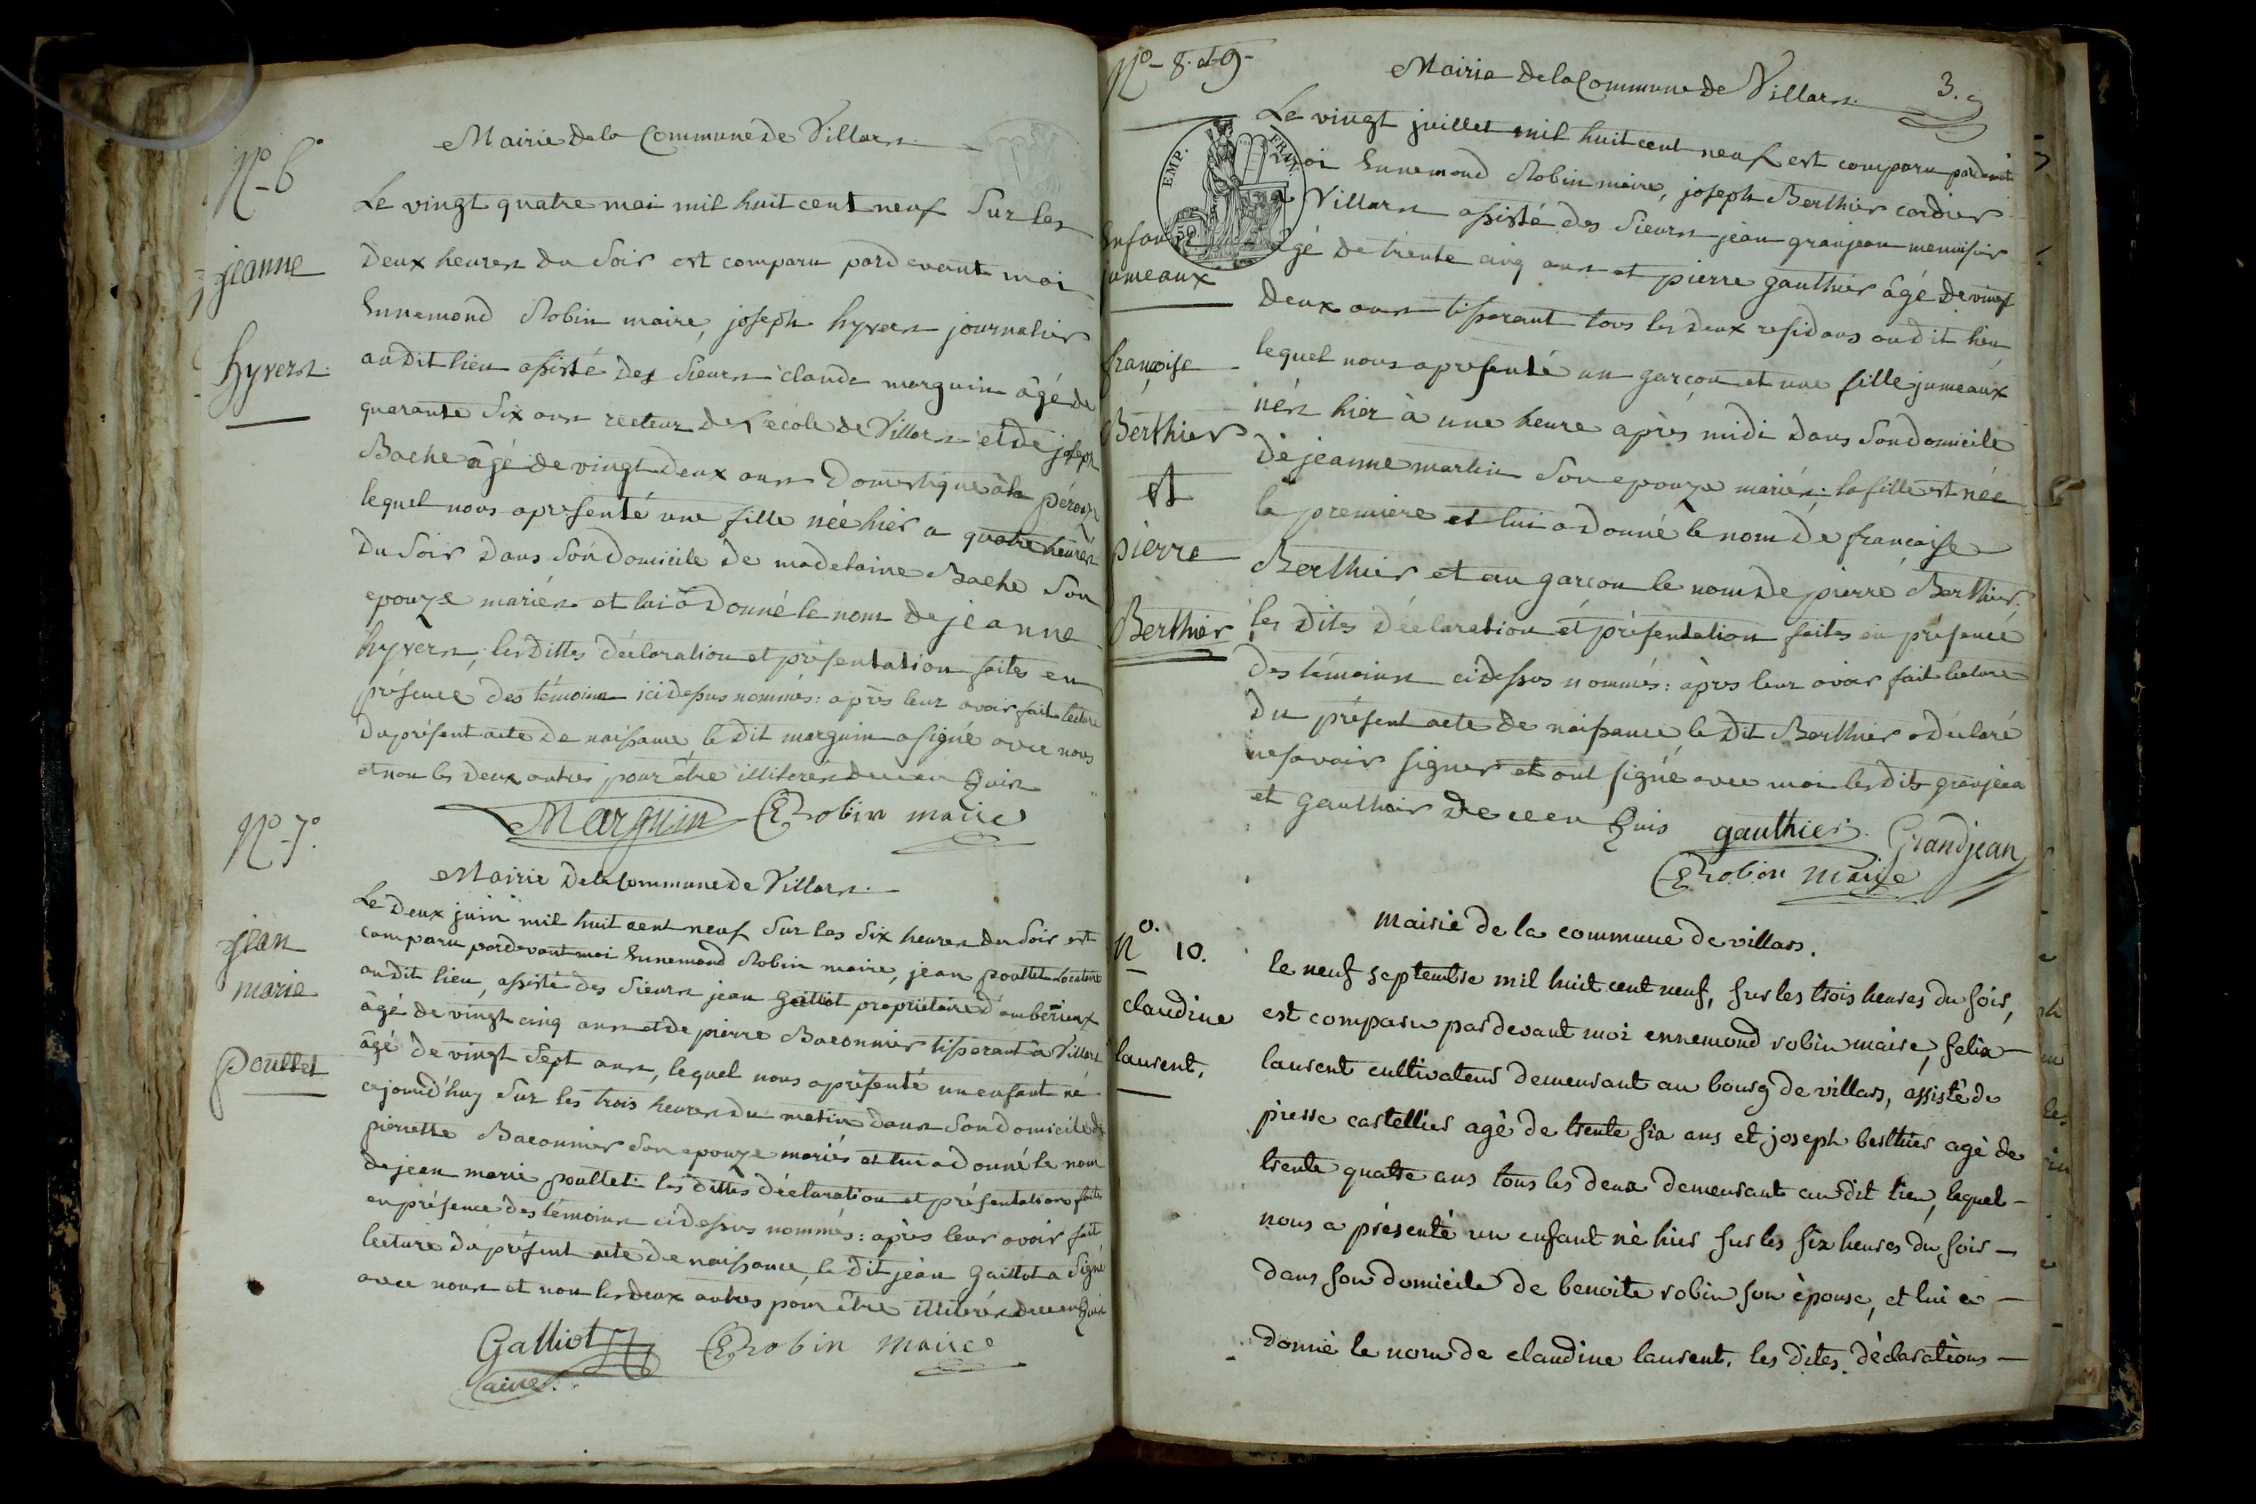 N° 6°
jeanne
hyvers.
Mairie de la Commune de Villars
Le vingt quatre mai mil huit cent neuf Sur les
deux heures du Soir est comparu pardevant moi
Ennemond Robin maire, joseph hyvers journalier
audit lieu assisté des Sieurs claude marguin âgé de
quarante Six ans recteur de l'école de Villars et de joseph
Bache âgé de vingt deux ans Domestique à la pérouze
lequel nous a présenté une fille née hier a quatre heures
du Soir dans Son domicile de madelaine Bache Son
epouze mariés et lui à donné le nom de jeanne
hyvers; les dittes déclaration et présentation faites en
présence des témoins ici dessus nommés: après leur avoir fait lecture
du présent acte de naissance, le dit marguin a signé avec nous
et non les deux autres pour être illiterés de ce en quis
Marguin ERobin maire
N° 7°.
jean
marie
poullet
Mairie de la Commune de Villars.
Le deux juin mil huit cent neuf Sur les Six heures du Soir est
comparu pardevant moi Ennemond Robin maire, jean poullet Locataire
audit lieu, assisté des Sieurs jean Galliot propriétaire d'ambérieux
âgé de vingt cinq ans et de pierre Baconnier tisserant à Villars
âgé de vingt Sept ans, lequel nous a présenté un enfant né
cejourd'huy Sur les trois heures du matin dans Son domicile de
pierrette Baconnier Son epouze mariés et lui a donné le nom
de jean marie poullet. les dittes déclaration et présentation faites
en présence des témoins cidessus nommés: après leur avoir fait
lecture du présent acte de naissance, le dit jean Galliot a Signé
avec nous et non les deux autres pour être illiterés de ce en quis
Galliot ERobin maire
ainé
N° 8. et 9.
Enfants
jumeaux
françoise
Berthier
et
pierre
Berthier
Mairie de la Commune de Villars.
3.
EMP. FRAN.
Le vingt juillet mil huit cent neuf est comparu pardevant
moi Ennemond Robin maire, joseph Berthier cordier
a Villars assisté des Sieurs jean granjean menuisier
âgé de trente cinq ans et pierre gauthier âgé de vingt
deux ans tisserant tous les deux residans audit lieu
lequel nous a présenté un garçon et une fille jumeaux
nés hier à une heure après midi dans Son domicile
de jeanne martin Son epouze mariés: la fille est née
la premiere et lui a donné le nom de françoise
Berthier et au garçon le nom de pierre Berthier.
les dites déclaration et présentation faites en présence
des témoins cidessus nommés: après leur avoir fait lecture
du présent acte de naissance, le dit Berthier a déclaré
ne savoir signer et ont signé avec moi lesdits granjean
et gauthier de ce en quis gauthier. Grandjean
ERobin Maire
N°. 10.
claudine
laurent.
mairie de la commune de villars.
le neuf septembre mil huit cent neuf, sur les trois heures du soir,
est comparu pardevant moi ennemond robin maire, felix
laurent cultivateur demeurant au bourg de villars, assisté de
pierre castellier agé de trente six ans et joseph berthier agé de
trente quatre ans tous les deux demeurant audit lieu, lequel
nous a présenté un enfant né hier sur les six heures du soir
dans son domicile de benoite robin son épouse, et lui a
donné le nom de claudine laurent. les dites déclarations